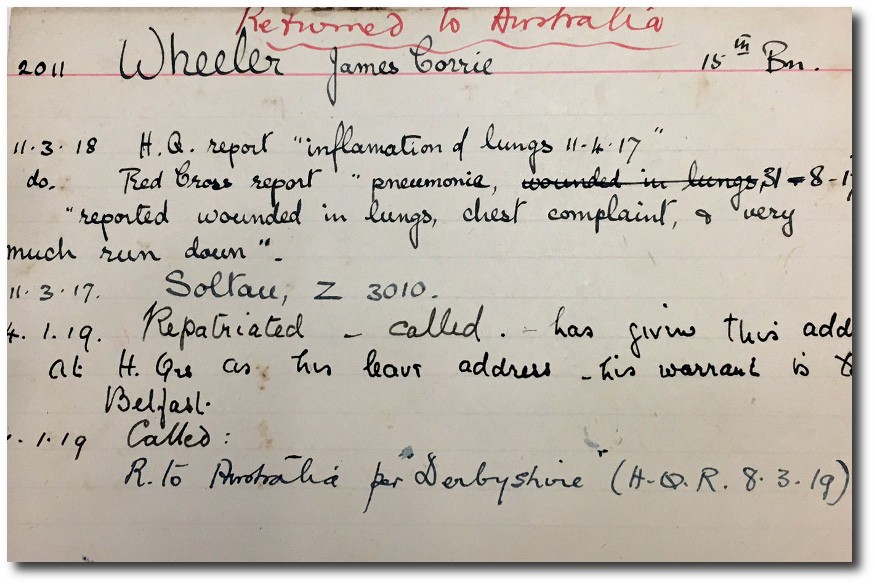 Returned to Australia
2011 Wheeler James Corrie 15th Bn.
11.3.18 H.Q. report "inflamation of lungs 11.4.17"
do. Red Cross report "pneumonia, wounded in lungs, 31-8-17
"reported wounded in lungs, chest complaint, & very
much run down".
11.3.17. Soltau, Z 3010.
4.1.19. Repatriated - called. - has given this add
at H. Qrs as his leave address - his warrant is
Belfast.
.1.19 Called:
R. to Australia per "Derbyshire" (H.Q.R. 8.3.19)